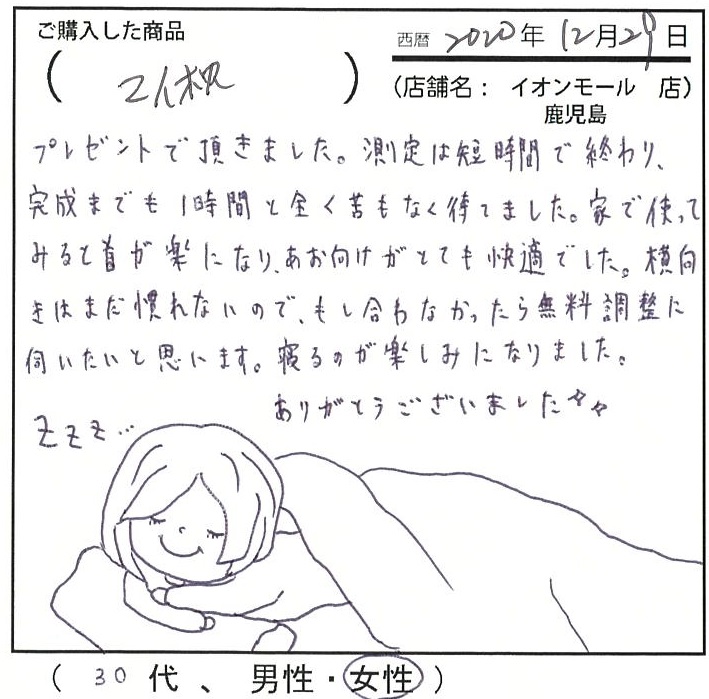 ご購入した商品
西暦 2020年 12月29日
(
)
(店舗名: イオンモール 店)
鹿児島
プレゼントで頂きました。測定は短時間で終わり、
完成までも1時間と全く苦もなく待てました。家で使って
みると首が楽になり、あお向けがとても快適でした。横向
きはまだ慣れないので、もし合わなかったら無料調整に
伺いたいと思います。寝るのが楽しみになりました。
ありがとうございました
zzz...
( 30 代 、 男性・女性 )